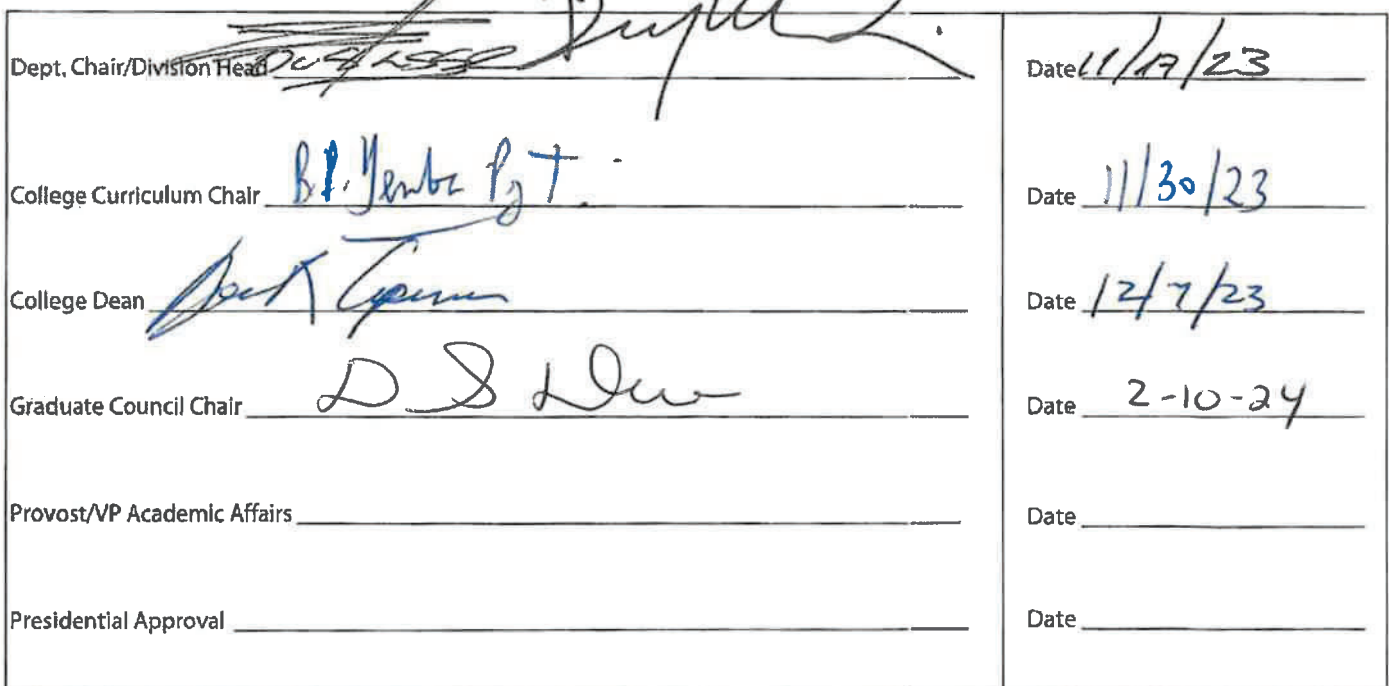 Dept, Chair/Division Head Date 11/17/23
College Curriculum Chair B.P. Yemba Date 11/30/23
College Dean Date 12/7/23
Graduate Council Chair D S Date 2-10-24
Provost/VP Academic Affairs Date
Presidential Approval Date